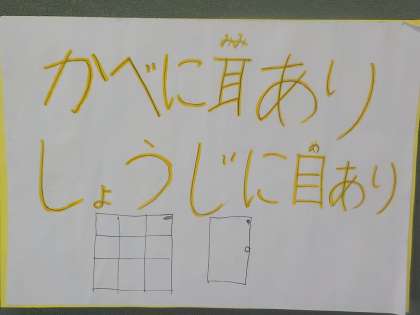 みみ
かべに耳あり
め
しょうじに目あり